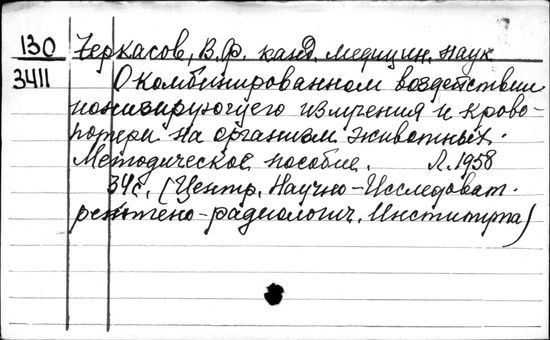 130 Черкасов, В.Ф. канд. медицин. наук
3411 О комбинированном воздействии
ионизирующего излучения и крово-
потери на организм животных.
Методическое пособие. Л. 1958
34с. (Центр. Научно-Исследоват.
рентгено-радиологич. Института)